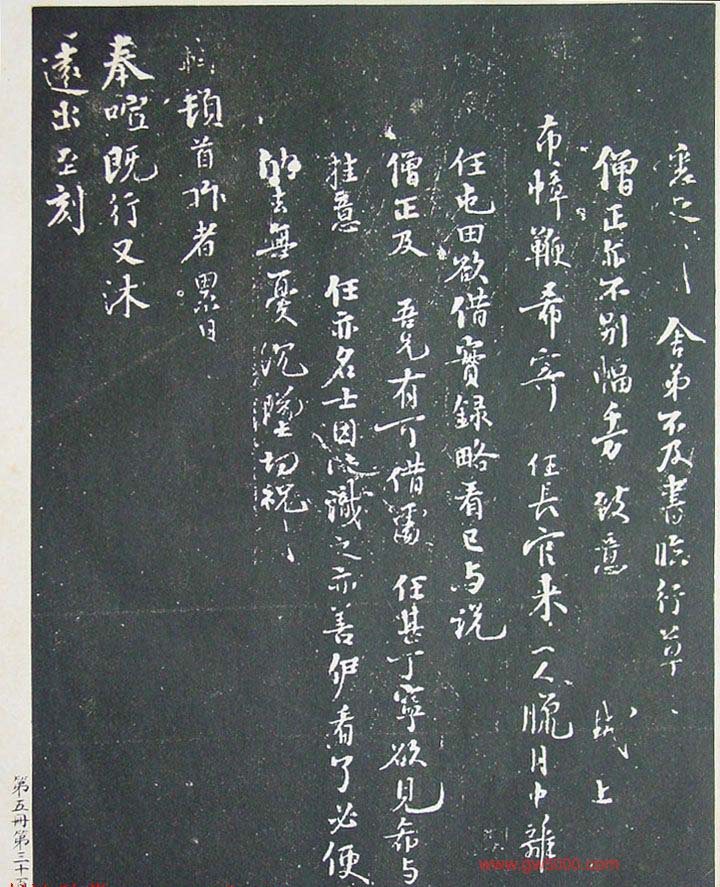 舍弟不及書臨行草〻
僧正不别幅多致意 軾上
布幛鞭希寄 任長官来一人臘月中離
任屯田欲借寶録略看已与説
僧正及 吾兄有可借處 任甚丁寧欲見希与
挂意 任亦名士因此識之亦善看了必便
納去無憂沉墜切祝〻
軾頓首昨者累日
奉喧既行又沐
遠出至刻
第五冊第三十
www.gw5000.com